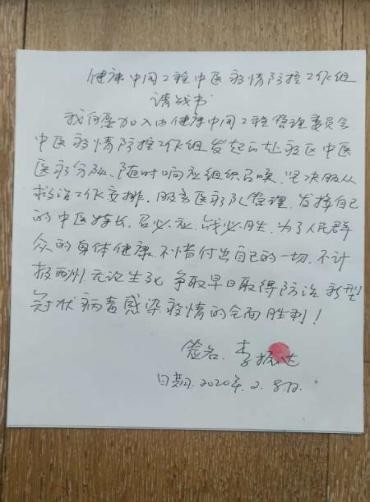 健康中国工程中医疫情防控工作组
请战书
我自愿加入由健康中国工程管理委员会
中医疫情防控工作组发起的赴疫区中医
医疗分队。随时响应组织召唤,坚决服从
救治工作安排。服务医疗队管理,发挥自
己的中医特长。召必应,战必胜,为了人民群
众的身体健康,不惜付出自己的一切,不计
报酬,无论生死,争取早日取得防治新型
冠状病毒感染疫情的全面胜利!
签名:李振
日期:2020年.2.8日.